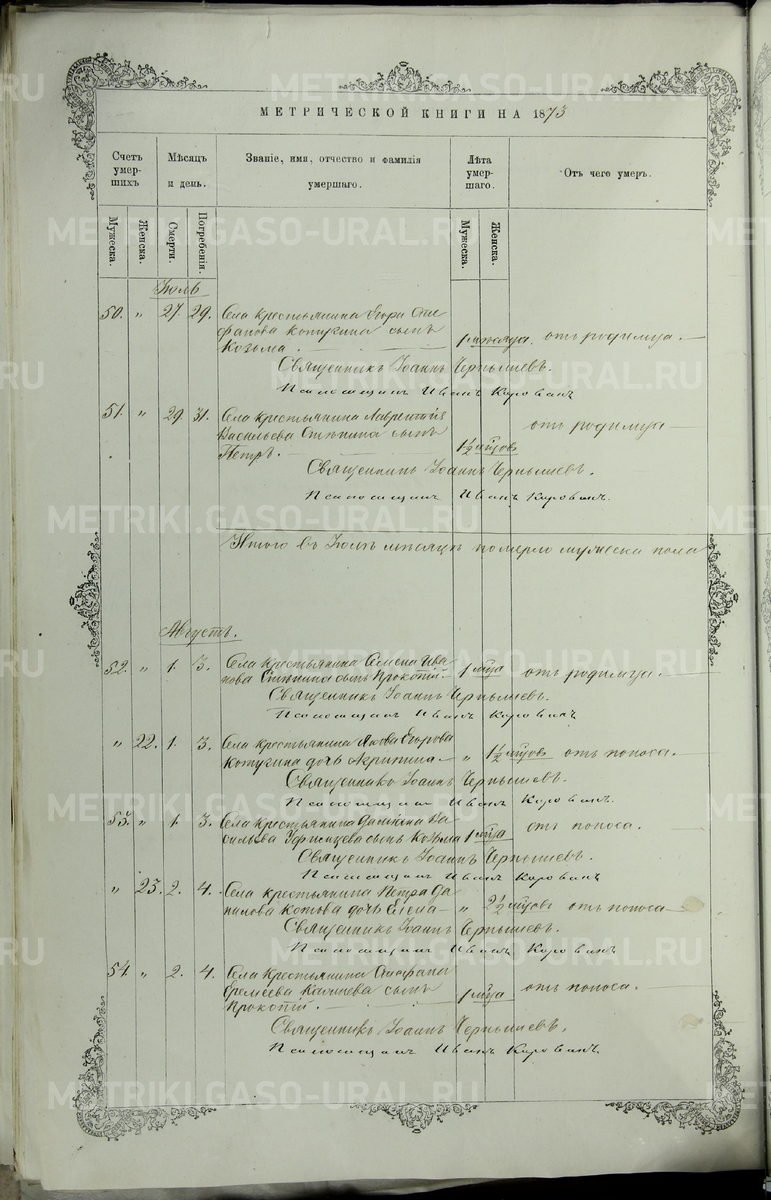 МЕТРИЧЕСКОЙ КНИГИ НА 1873
Счетъ умер-шихъ
Мѣсяцъ и день.
Званіе, имя, отчество и фамилія умершаго.
Лѣта умер-шаго.
Отъ чего умеръ.
Мужеска.
Женска.
Смерти.
Погребенія.
Мужеска.
Женска.
Іюль
50. „ 27. 29. Села крестьянина
Котугина сынъ
Козьма. отъ родимца.
Священникъ Іоаннъ Чернышевъ.
Псаломщикъ Иванъ
51. „ 29. 31. Села крестьянина Лаврентія
Васильева сынъ отъ родимца
Петръ. 1½ мѣсцовъ
Священникъ Іоаннъ Чернышевъ.
Псаломщикъ Иванъ
Итого въ Іюлѣ мѣсяцѣ померло мужеска пола
Августъ.
52. „ 1. 3. Села крестьянина Семена Ива-
нова сынъ Прокопій. 1 мѣца отъ родимца.
Священникъ Іоаннъ Чернышевъ.
Псаломщикъ Иванъ
„ 22. 1. 3. Села крестьянина Якова Егорова
Котугина дочь Агрипина „ 1½ мѣцовъ отъ поноса.
Священникъ Іоаннъ Чернышевъ.
Псаломщикъ Иванъ
53. „ 1. 3. Села крестьянина Ва-
сильева сынъ Козьма 1 мѣца отъ поноса.
Священникъ Іоаннъ Чернышевъ.
Псаломщикъ Иванъ
„ 23. 2. 4. Села крестьянина Петра Да-
нилова Котова дочь Елена „ 2½ мѣцовъ отъ поноса
Священникъ Іоаннъ Чернышевъ.
Псаломщикъ Иванъ
54 „ 2. 4. Села крестьянина Стефана
Еремеева сынъ
Прокопій. 1 мѣца отъ поноса.
Священникъ Іоаннъ Чернышевъ.
Псаломщикъ Иванъ
METRIKI.GASO-URAL.RU